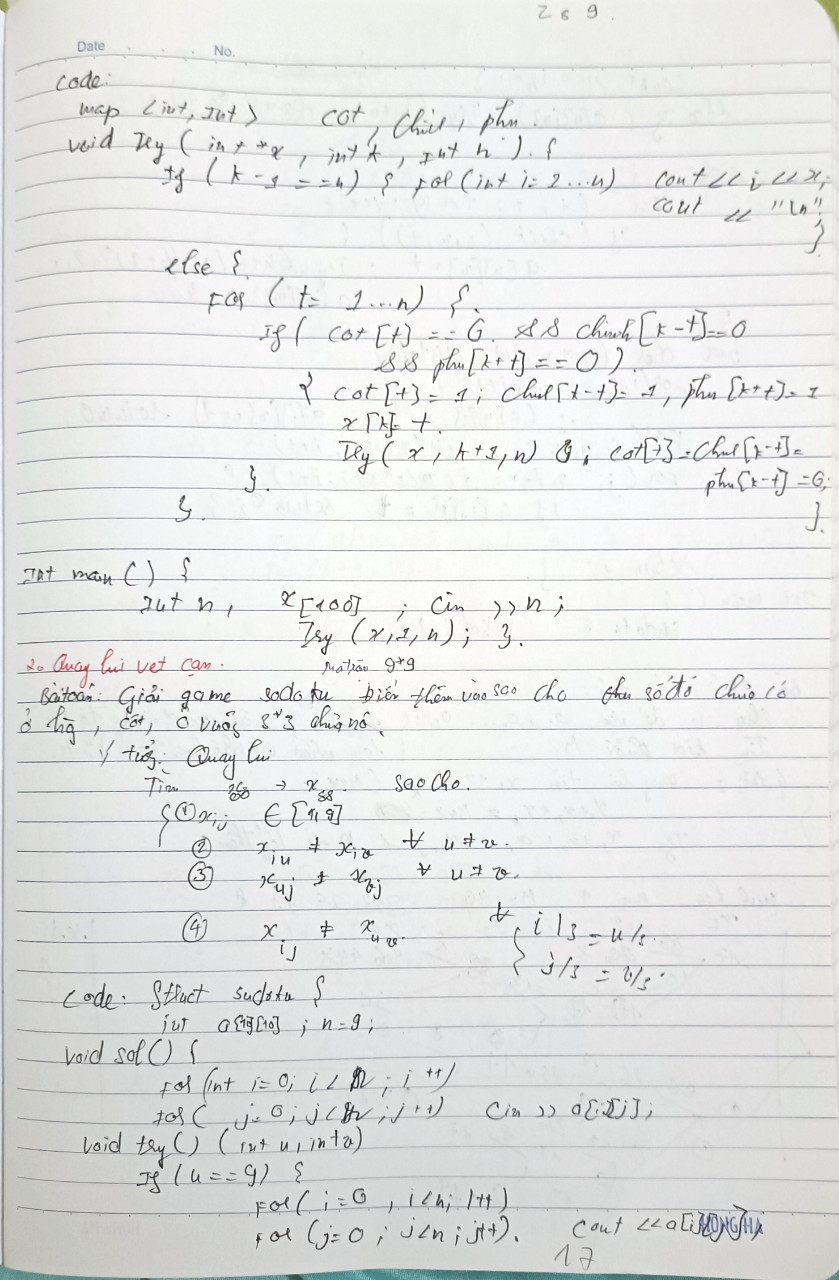 2 8 9.
Date No.
code:
map <int, Int> cot, chih, phu.
void Try (int *x, int k, Int n). {
If (k-1 == n) { For (int i = 1...n) cout << i << x;
cout << "\n"
}
else {.
For (t = 1...n) {.
If ( cot [t] == 0. && chinh [k-t] == 0
&& phu [k+t] == 0).
{ cot [t] = 1; chih [k-t] = 1, phu [k+t] = 1
x [k] = t.
Try (x, k+1, n) ; cot[t] = chih [k-t] =
phu [k-t] = 0;
}. }.
}.
Int main () {
Int n, x [100] ; Cin >> n;
Try (x, 1, n); }.
2. Quay lui vet cạn. matrận 9*9
Bài toán: Giải game sodoku điền thêm vào sao cho số đó chưa có
ở hg, cột, ô vuông 3*3 chứa nó.
Ý tưởng: Quay lui
Tìm → x88. Sao cho.
{ ① xij ∈ [1, 9]
② xiu ≠ xiv ∀ u ≠ v.
③ xuj ≠ xvj ∀ u ≠ v.
④ xij ≠ xuv. ∀ { i/3 = u/3.
j/3 = v/3.
Code: Struct sudoku {
int a[10][10] ; n = 9;
void sol () {
For (int i = 0; i < n ; i ++)
For ( j = 0; j < n ; j ++) Cin >> a[i][j];
void try () (int u, int v)
If (u == 9) {
For ( i = 0 , i < n; i++)
For (j = 0 ; j < n ; j++). Cout << a[i][j];
HONG HA
17